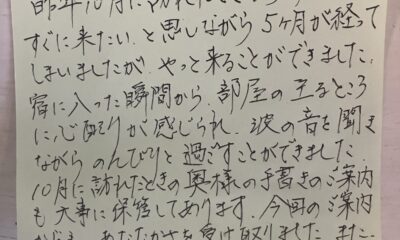 昨年10月に
すぐに来たい、と思しながら 5ヶ月が経って
しまいましたが やっと来ることができました。
宿に入った瞬間から、部屋の至るところ
に心配りが感じられ、波の音を聞き
ながら のんびりと過ごすことができました
10月に訪れたときの奥様の手書きのご案内
も大事に保管してあります。今回のご案内
あたたかさを受け取りました。また、